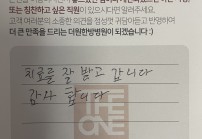 또는 칭찬하고 싶은 직원이 있으시다면 알려주세요.
고객 여러분의 소중한 의견을 정성껏 귀담아듣고 반영하여
더 큰 만족을 드리는 더원한방병원이 되겠습니다 :)
치료를 잘 받고 갑니다
감사 합니다
THE
ONE